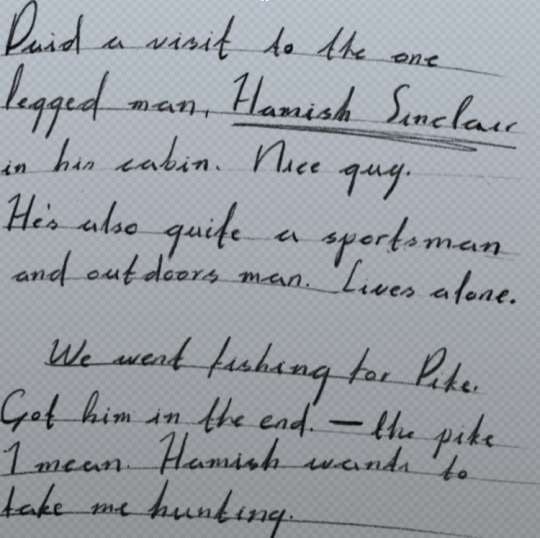 Paid a visit to the one
legged man, Hamish Sinclair
in his cabin. Nice guy.
He's also quite a sportsman
and outdoors man. Lives alone.
We went fishing for Pike.
Got him in the end. — the pike
I mean. Hamish wants to
take me hunting.